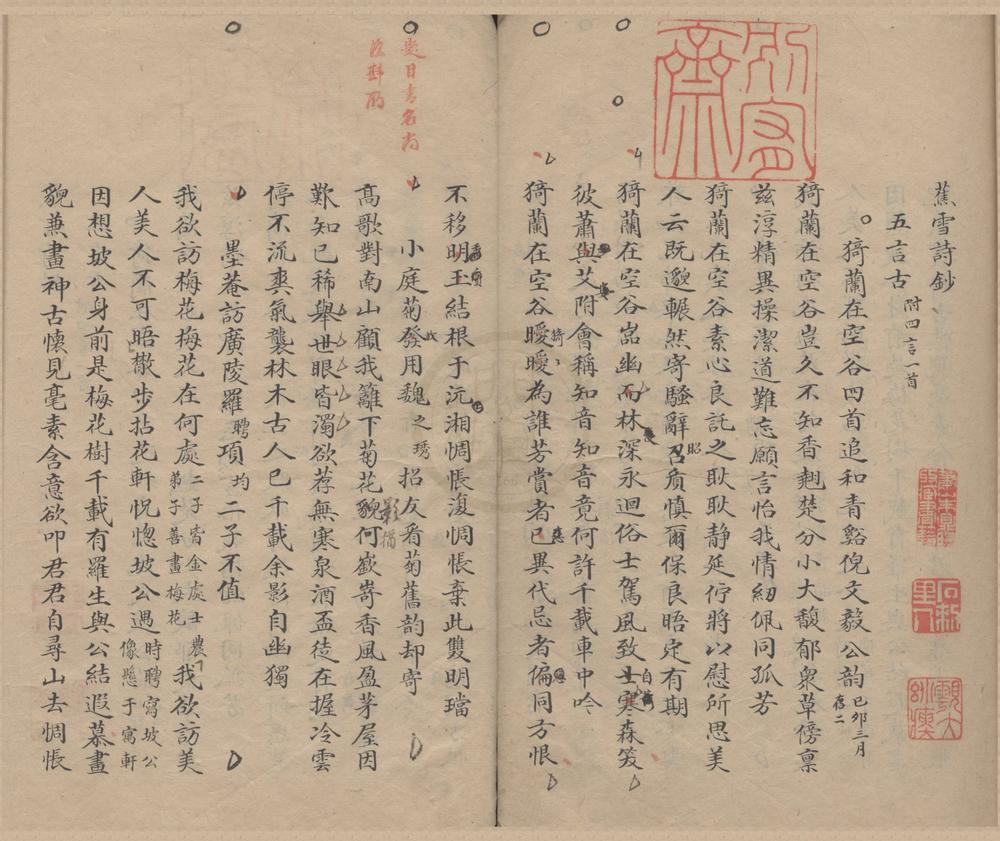 蕉雪詩鈔
五言古 附四言一首
猗蘭在空谷四首追和青谿倪文毅公韵 己卯三月 存二
猗蘭在空谷豈久不知香翹楚分小大馥郁衆草傍稟
茲淳精異操潔道難忘願言怡我情紉佩同孤芳
猗蘭在空谷素心良託之耿耿静延佇將以慰所思美
人云既邈輾然寄騷辭召貭慎爾保良晤定有期
昭
猗蘭在空谷嵓幽而林深永迴俗士駕風致士寒森笅
彼蕭與艾附會稱知音知音竟何許千載車中吟
猗蘭在空谷曖曖為誰芳賞者已異代忌者偏同方恨
不移明玉結根于沅湘惆悵復惆悵棄此雙明璫
題目書名尚
小庭菊發用魏之琇招友看菊舊韵却寄
高歌對南山顧我籬下菊花貌何嶔嵜香風盈茅屋因
影
歎知已稀舉世眼皆濁欲荐無寒泉酒盃徒在握冷雲
停不流爽氣襲林木古人已千載余影自幽獨
墨菴訪廣陵羅聘項均二子不值
我欲訪梅花梅花在何處 二子皆金處士農弟子善畫梅花 我欲訪美
人美人不可晤散步拈花軒怳惚坡公遇 時聘寫坡公像懸于寓軒
因想坡公身前是梅花樹千載有羅生與公結遐慕畫
貌兼畫神古懷見毫素含意欲叩君君自尋山去惆悵